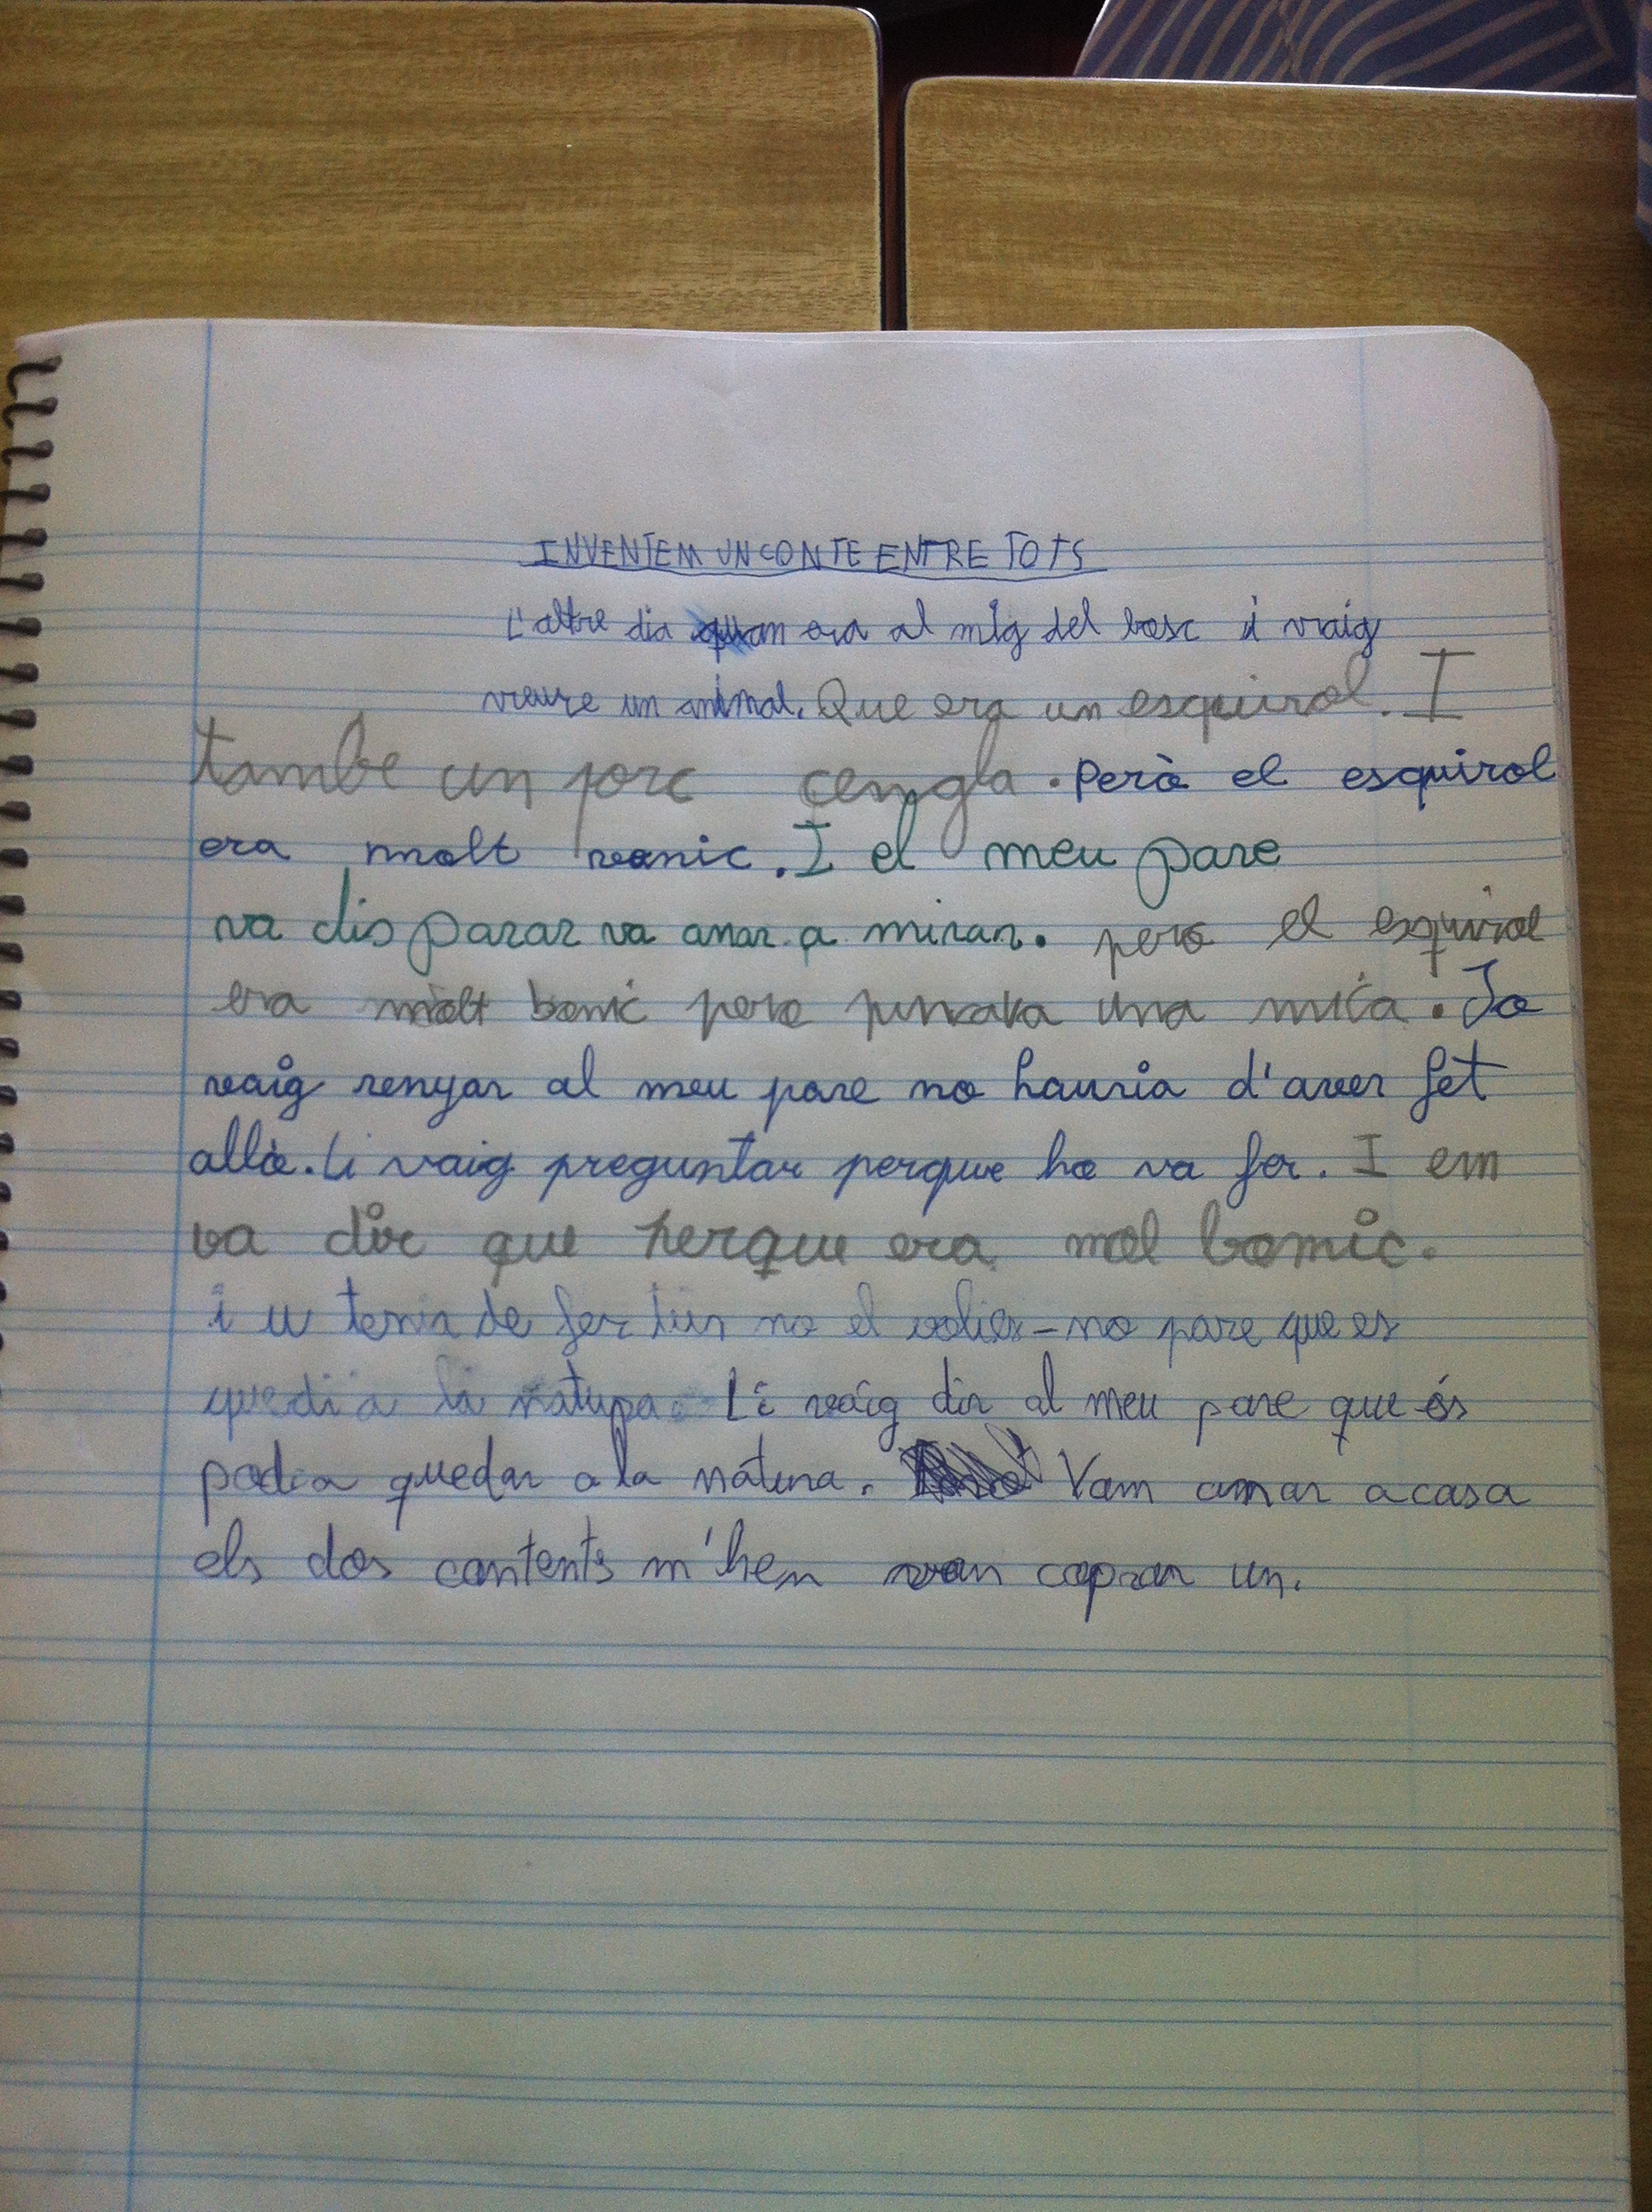 INVENTEM UN CONTE ENTRE TOTS
L'altre dia quan era al mig del bosc i vaig
veure un animal. Que era un esquirol. I
tambe un porc çengla. Però el esquirol
era molt vonic. I el meu pare
va disparar va anar a mirar. pero el esquirol
era molt bonic pero punxava una mica. Jo
vaig renyar al meu pare no hauria d'aver fet
allò. Li vaig preguntar perque ho va fer. I em
va dir que perque era mol bonic.
i u tenia de fer no el volies - no pare que es
quedi a la natura. Li vaig dir al meu pare que és
podia quedar a la natura. Vam anar a casa
els dos contents m'hen van copran un.